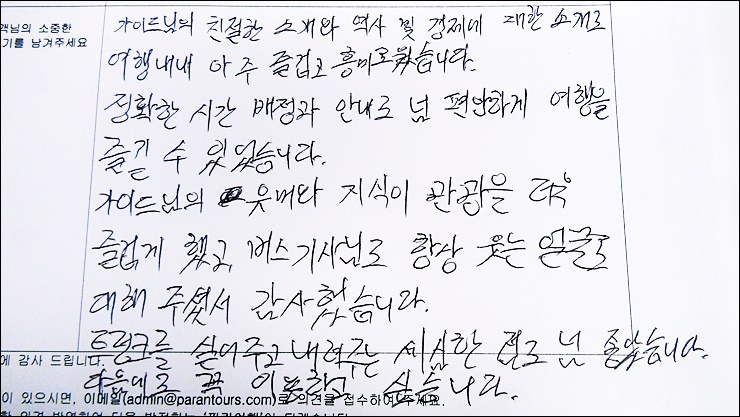 객님의 소중한
기를 남겨주세요
가이드님의 친절한 소개와 역사 및 경제에 대한 소개로
여행내내 아주 즐겁고 흥미로웠습니다.
정확한 시간 배정과 안내로 넘 편안하게 여행을
즐길 수 있었습니다.
가이드님의 웃머와 지식이 관광을 더욱
즐겁게 했고, 버스기사님도 항상 웃는 얼굴로
대해 주셨서 감사했습니다.
트렁크를 실어주고 내려주는 세심한 점도 넘 좋았습니다.
에 감사 드립니다.
다음에도 꼭 이용하고 싶습니다.
이 있으시면, 이메일(admin@parantours.com)로 의견을 접수하여 주세요.